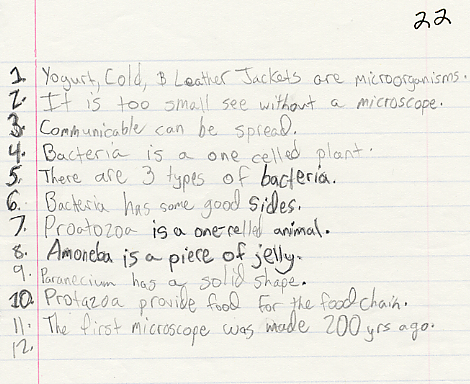 22
1. Yogurt, Cold, B Leather Jackets are microorganisms.
2. It is too small see without a microscope.
3. Communicable can be spread.
4. Bacteria is a one celled plant.
5. There are 3 types of bacteria.
6. Bacteria has some good sides.
7. Proatozoa is a one-celled animal.
8. Amoneba is a piece of jelly.
9. Paranecium has a solid shape.
10. Protazoa provide food for the foodchain.
11. The first microscope was made 200 yrs ago.
12.